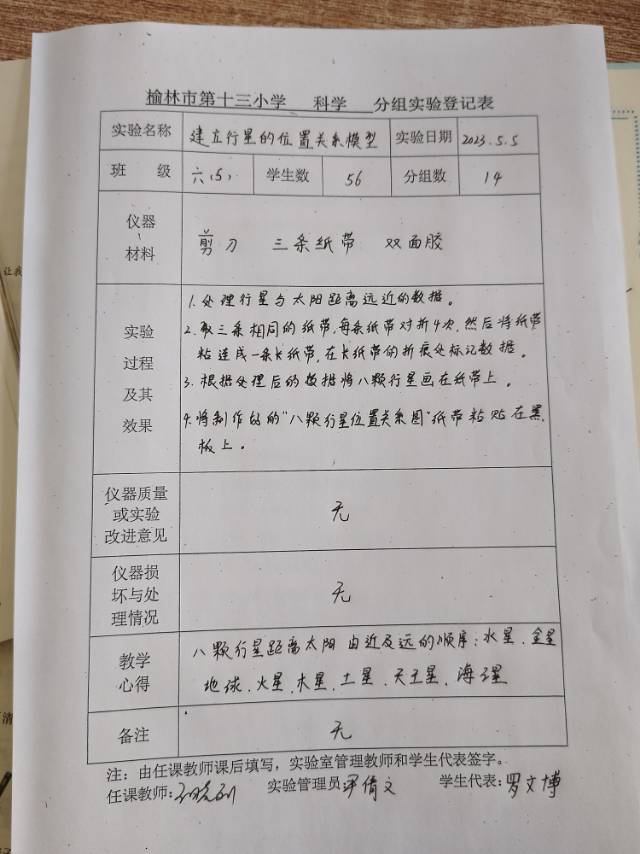 榆林市第十三小学 科学 分组实验登记表
实验名称 建立行星的位置关系模型 实验日期 2023.5.5
班 级 六(5) 学生数 56 分组数 14
仪器
、
材料
剪刀 三条纸带 双面胶
实验
过程
及其
效果
1.处理行星与太阳距离远近的数据。
2.取三条相同的纸带,每条纸带对折4次,然后将纸带
粘连成一条长纸带,在长纸带的折痕处标记数据。
3.根据处理后的数据将八颗行星画在纸带上。
4.将制作的的“八颗行星位置关系图”纸带粘贴在黑
板上。
仪器质量
或实验
改进意见
无
仪器损
坏与处
理情况
无
教学
心得
八颗行星距离太阳由近及远的顺序:水星、金星
地球、火星、木星、土星、天王星、海王星
备注 无
注:由任课教师课后填写,实验室管理教师和学生代表签字。
任课教师: 实验管理员: 倩文 学生代表:罗文博